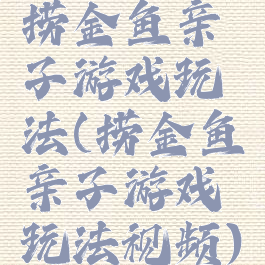 捞金鱼亲
子游戏玩
法(捞金鱼
亲子游戏
玩法视频)